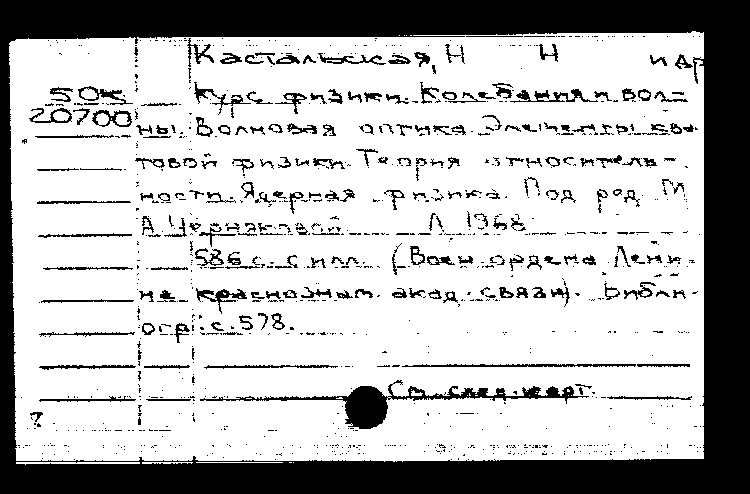 Кастальская, Н Н и др
50к
20700
Курс физики. Колебания и вол-
ны. Волновая оптика. Элементы ква
товой физики. Теория относитель-
ности. Ядерная физика. Под ред. М
А. Черняковой Л 1968
586 с. с илл. (Воен. ордена Лени-
на краснознам. акад. связи). Библи-
огр.: с. 578.
См. след. карт.